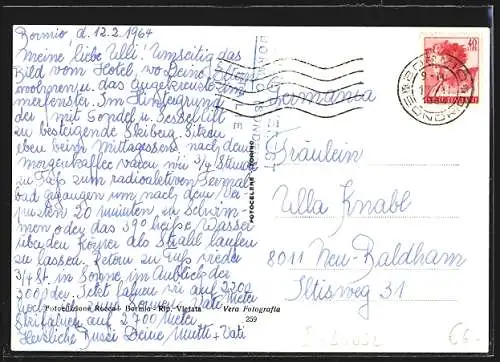 Bormio, d. 12.2.1964
Meine liebe Ulli! Umseitig das
Bild vom Hotel, wo Deine Eltern
wohnen, u. das angekreuzte Zim-
merfenster. Im Hintergrund
der mit Gondel u. Sessellift
zu besteigende Skiberg. Sitzen
eben beim Mittagessen, nach dem
Morgenkaffee waren wir 3/4 Stunde
zu Fuß zum radioaktiven Termal-
bad gegangen um nach dem
20 Minuten, in Schwim-
men oder das 39° heiße Wasser
über den Körper als Strahl laufen
zu lassen. Retour zu Fuß wieder
3/4 St. in Sonne im Anblick der
3000der. Jetzt fahren wir auf 2200
Meter
Skifahren auf 2700 Meter
Herzliche Bussi Deine Mutti + Vati
Fotoedizione Rocca - Bormio - Rip. Vietata
Vera Fotografia
259
FOTOCELERE TORINO
40
Germania
Fräulein
Ulla Knabl
8011 Neu-Baldham
Iltisweg 31
€6.-